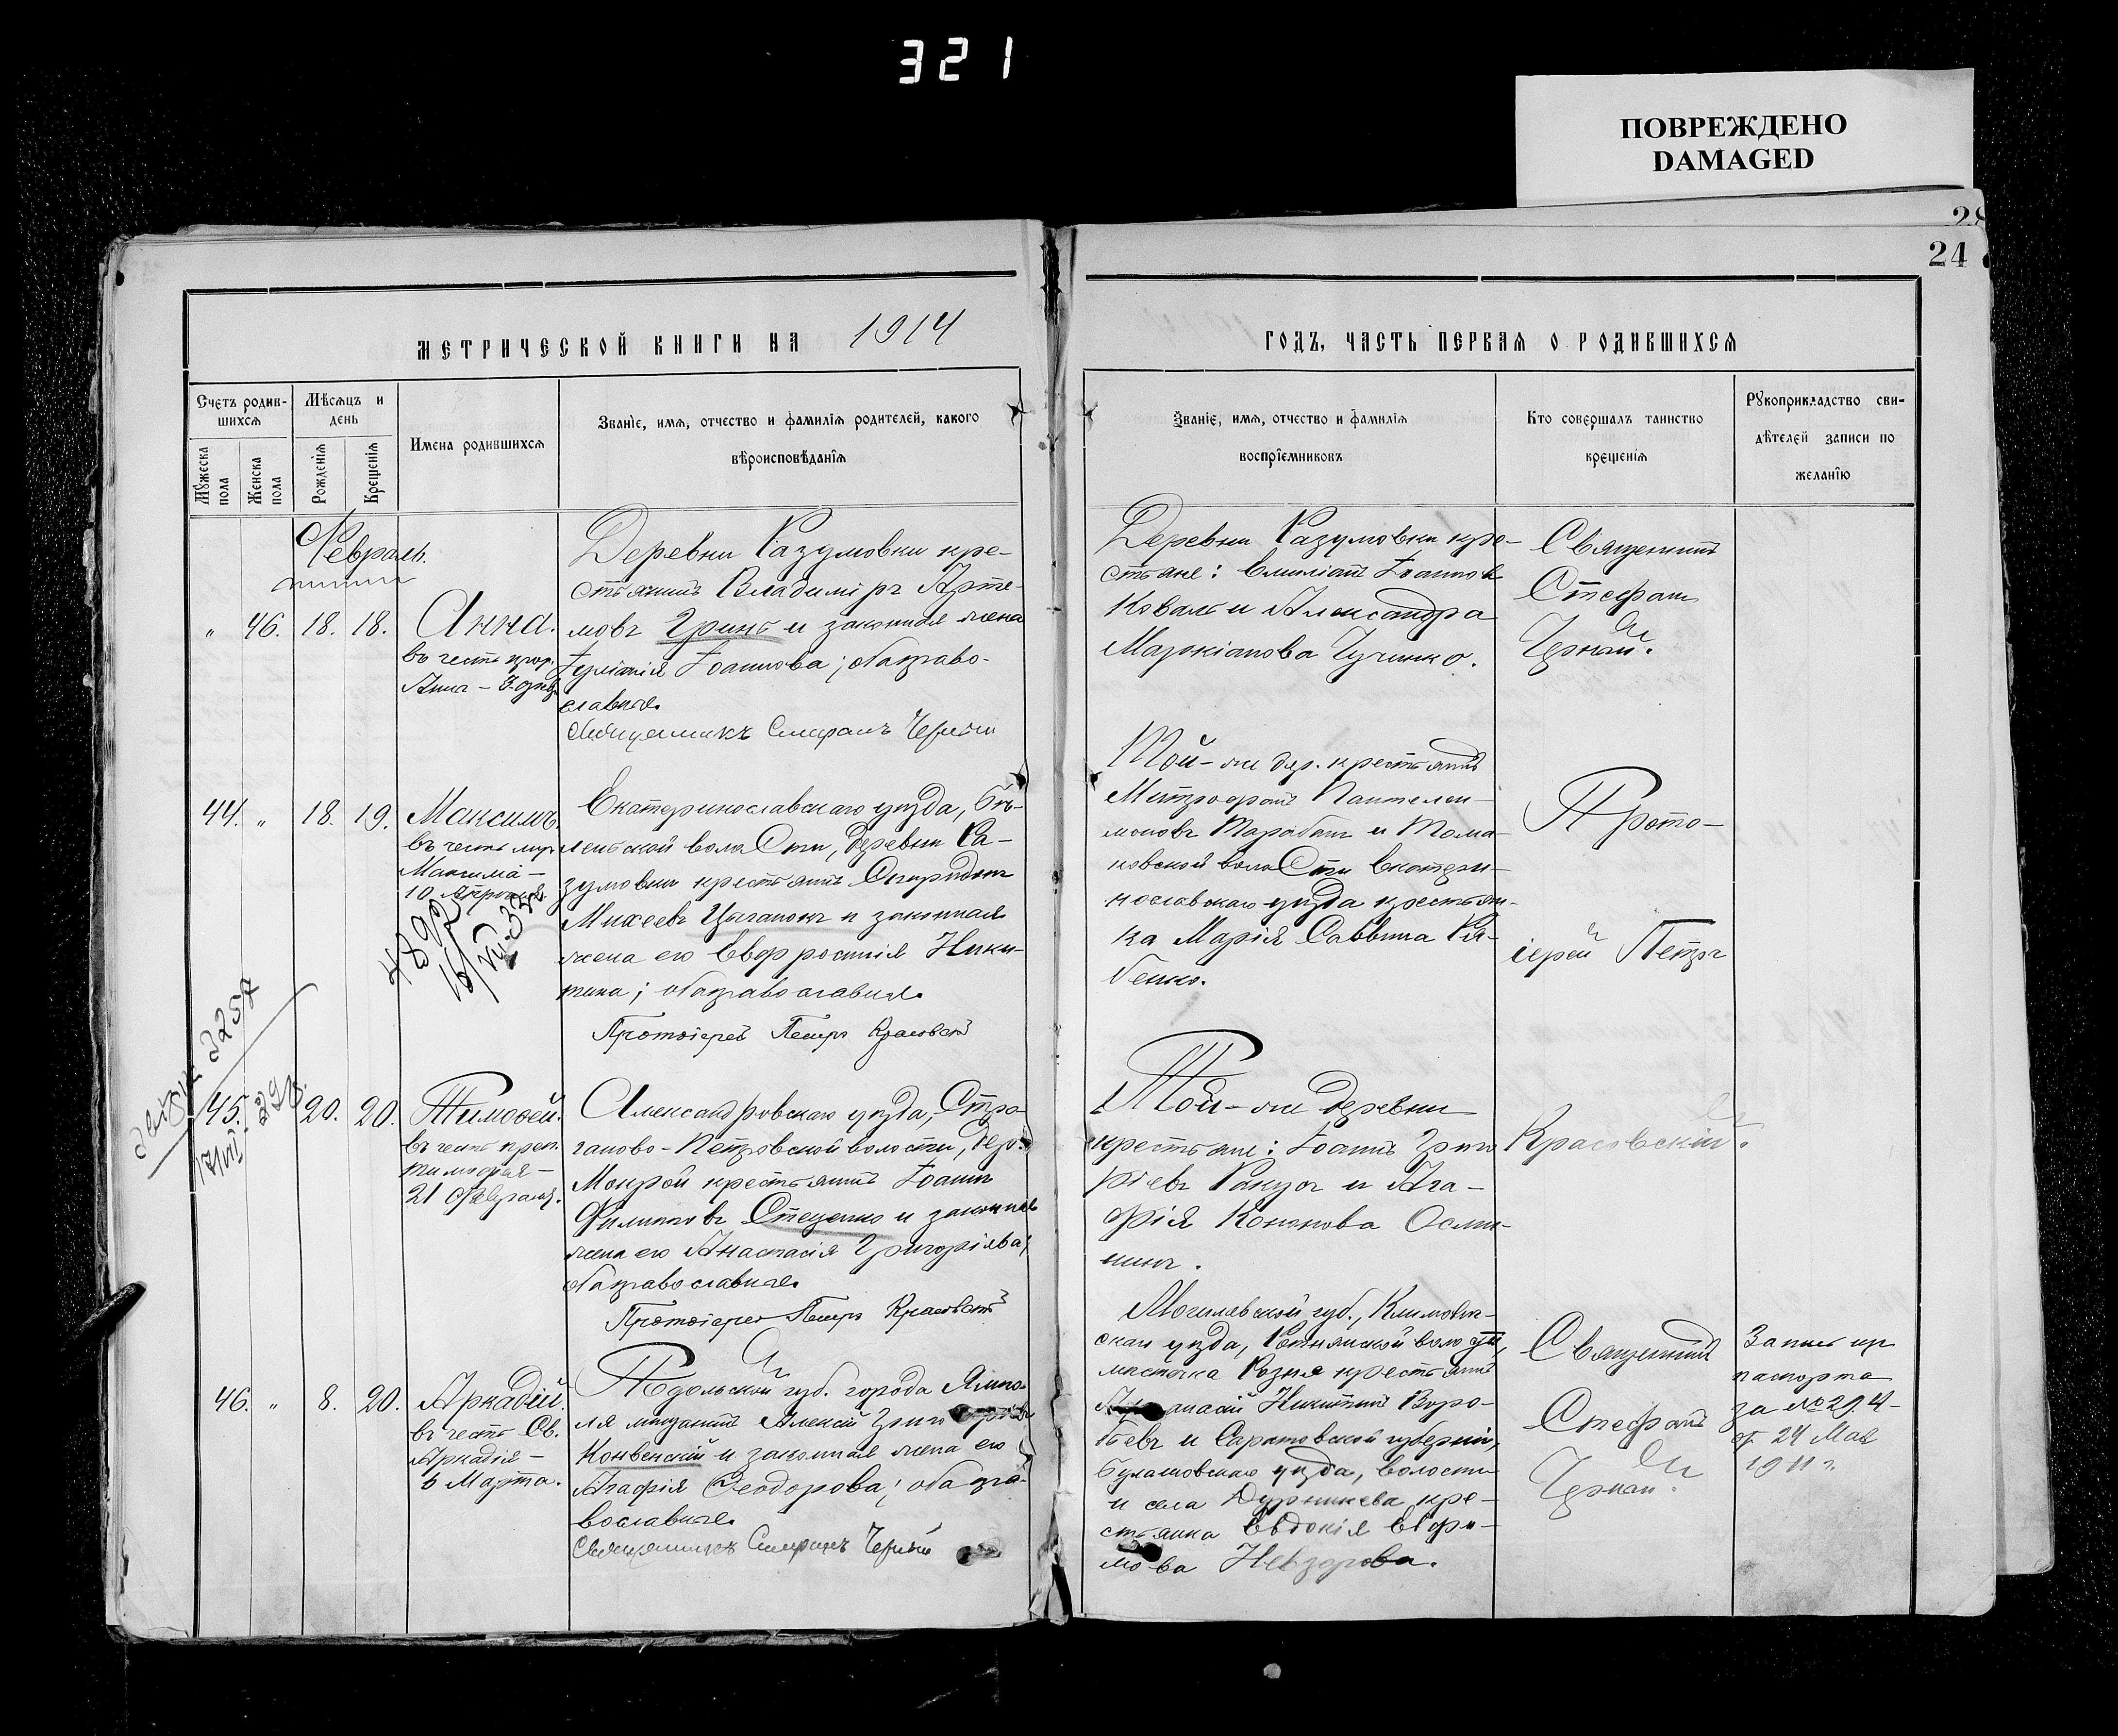 321
ПОВРЕЖДЕНО
DAMAGED
28
24
МЕТРИЧЕСКОЙ КНИГИ НА 1914
ГОДЪ, ЧАСТЬ ПЕРВАЯ О РОДИВШИХСЯ
Счетъ родив-
шихся
Мужеска пола
Женска пола
Мѣсяцъ и
день
Рожденія
Крещенія
Имена родившихся
Званіе, имя, отчество и фамилія родителей, какого
вѣроисповѣданія
Званіе, имя, отчество и фамилія
воспріемниковъ
Кто совершалъ таинство
крещенія
Рукоприкладство сви-
дѣтелей записи по
желанію
Февраль.
" 46. 18. 18.
Анна.
въ честь прор.
Анна – 3 февр.
Деревни Разумовки кре-
стьянинъ Владиміръ Арте-
мовъ Гринь и законная жена
Іуліанія Іоаннова; оба право-
славные.
Священникъ Стефанъ Черный
Деревни Разумовки кре-
стьяне: Емиліанъ Іоанновъ
Коваль и Александра
Маркіанова Чученко.
Священникъ
Стефанъ
Черный.
44. " 18. 19.
Максимъ.
въ честь муч.
Максима –
10 Апрѣля
4892
16/VIII-33
Екатеринославскаго уѣзда, Бѣ-
ленькой волости, деревни Ра-
зумовки крестьянинъ Спиридонъ
Михеевъ Цыганокъ и законная
жена его Евфросинія Ники-
тина; оба православные.
Протоіерей Петръ Красовскій
Той-же дер. крестьянинъ
Митрофанъ Пантелеи-
моновъ Тарабанъ и Тома-
ковской волости Екатери-
нославскаго уѣзда крестьян-
ка Марія Саввина Ря-
бенко.
Прото-
іерей Петръ
45. 20. 20.
Тимофей.
въ честь преп.
Тимофея –
21 Февраля.
Александровскаго уѣзда, Стро-
ганово-Петровской волости, дер.
Мокрой крестьянинъ Іоаннъ
Филипповъ Стеценко и законная
жена его Анастасія Григоріева;
оба православные.
Протоіерей Петръ Красовскій
Той-же деревни
крестьяне: Іоаннъ Григо
ріевъ Ракуча и Ага-
фія Кононова Осми-
нинъ.
Красовскій.
46. " 8. 20.
Аркадій.
въ честь Св.
Аркадія –
6 Марта.
Подольской губ. города Ямпо-
ля мѣщанинъ Алексій Григоріевъ
Конвенскій и законная жена его
Агафія Феодорова; оба пра-
вославные.
Священникъ Стефанъ Черный
Могилевской губ., Климович-
скаго уѣзда, волости,
мѣстечка крестьянинъ
Никитинъ Воро-
бьевъ и Саратовской губерніи,
Балашовскаго уѣзда, волости
и села Дурникева кре-
стьянка Евдокія Ефи-
мова Невзорова.
Священникъ
Стефанъ
Черный.
Запись пр.
паспорта
за № 294
от 24 Мая
1911 г.